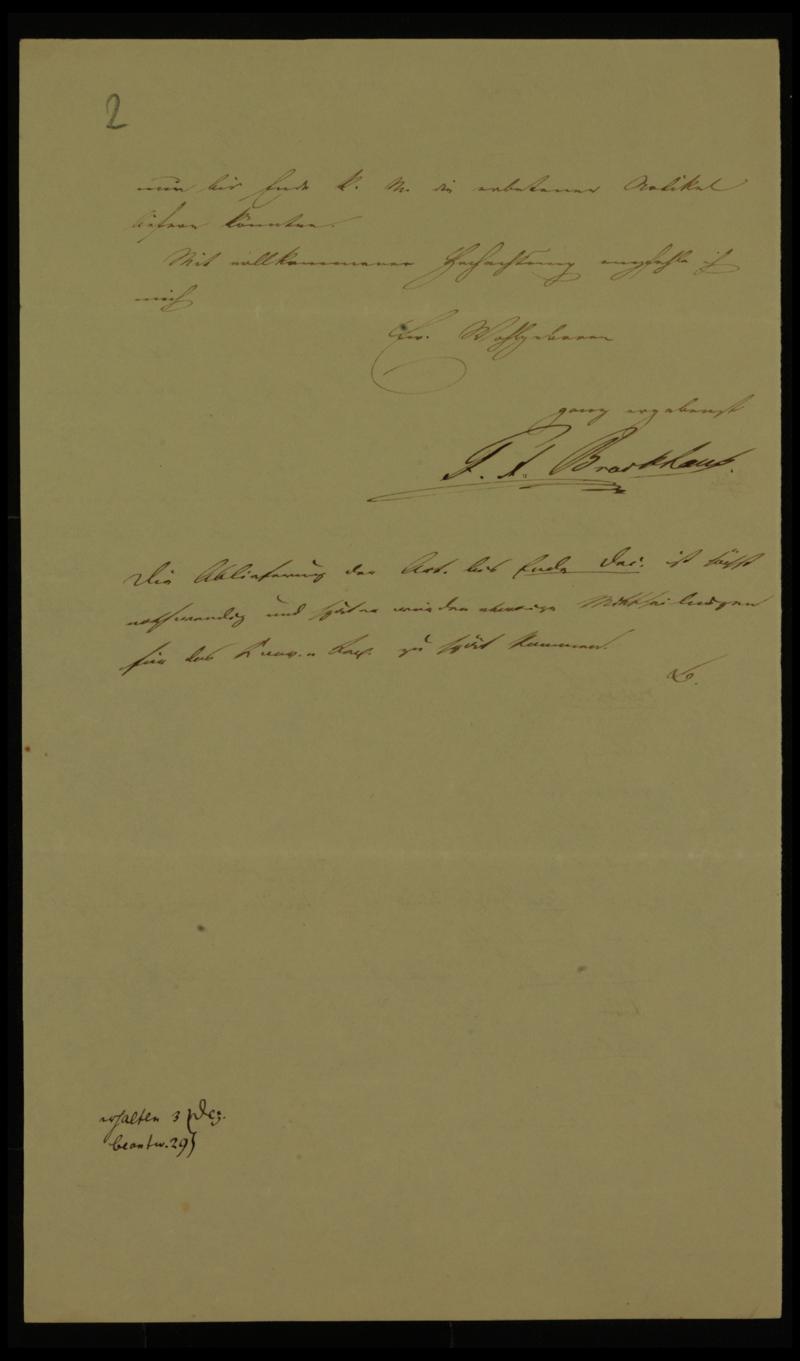 2
nun bis Ende k. M. die erbetenen Artikel
liefern könnten.
Mit vollkommener Hochachtung empfehle ich
mich
Ew. Wohlgeboren
ganz ergebenst
F. A. Brockhaus.
Die Ablieferung der Art. bis Ende Dec. ist höchst
nothwendig und später würden etwaige Mittheilungen
für das Conv.-Lex. zu spät kommen.
erhalten 3 Dez.
beantw. 29